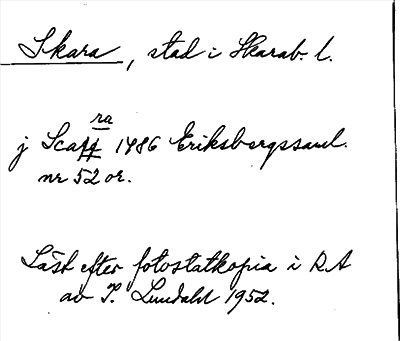 Skara, stad i Skarab. l.
ra
j Scaff 1486 Eriksbergssaml.
nr 52 or.
Läst efter fotostatkopia i RA
av P. Lundahl 1952.